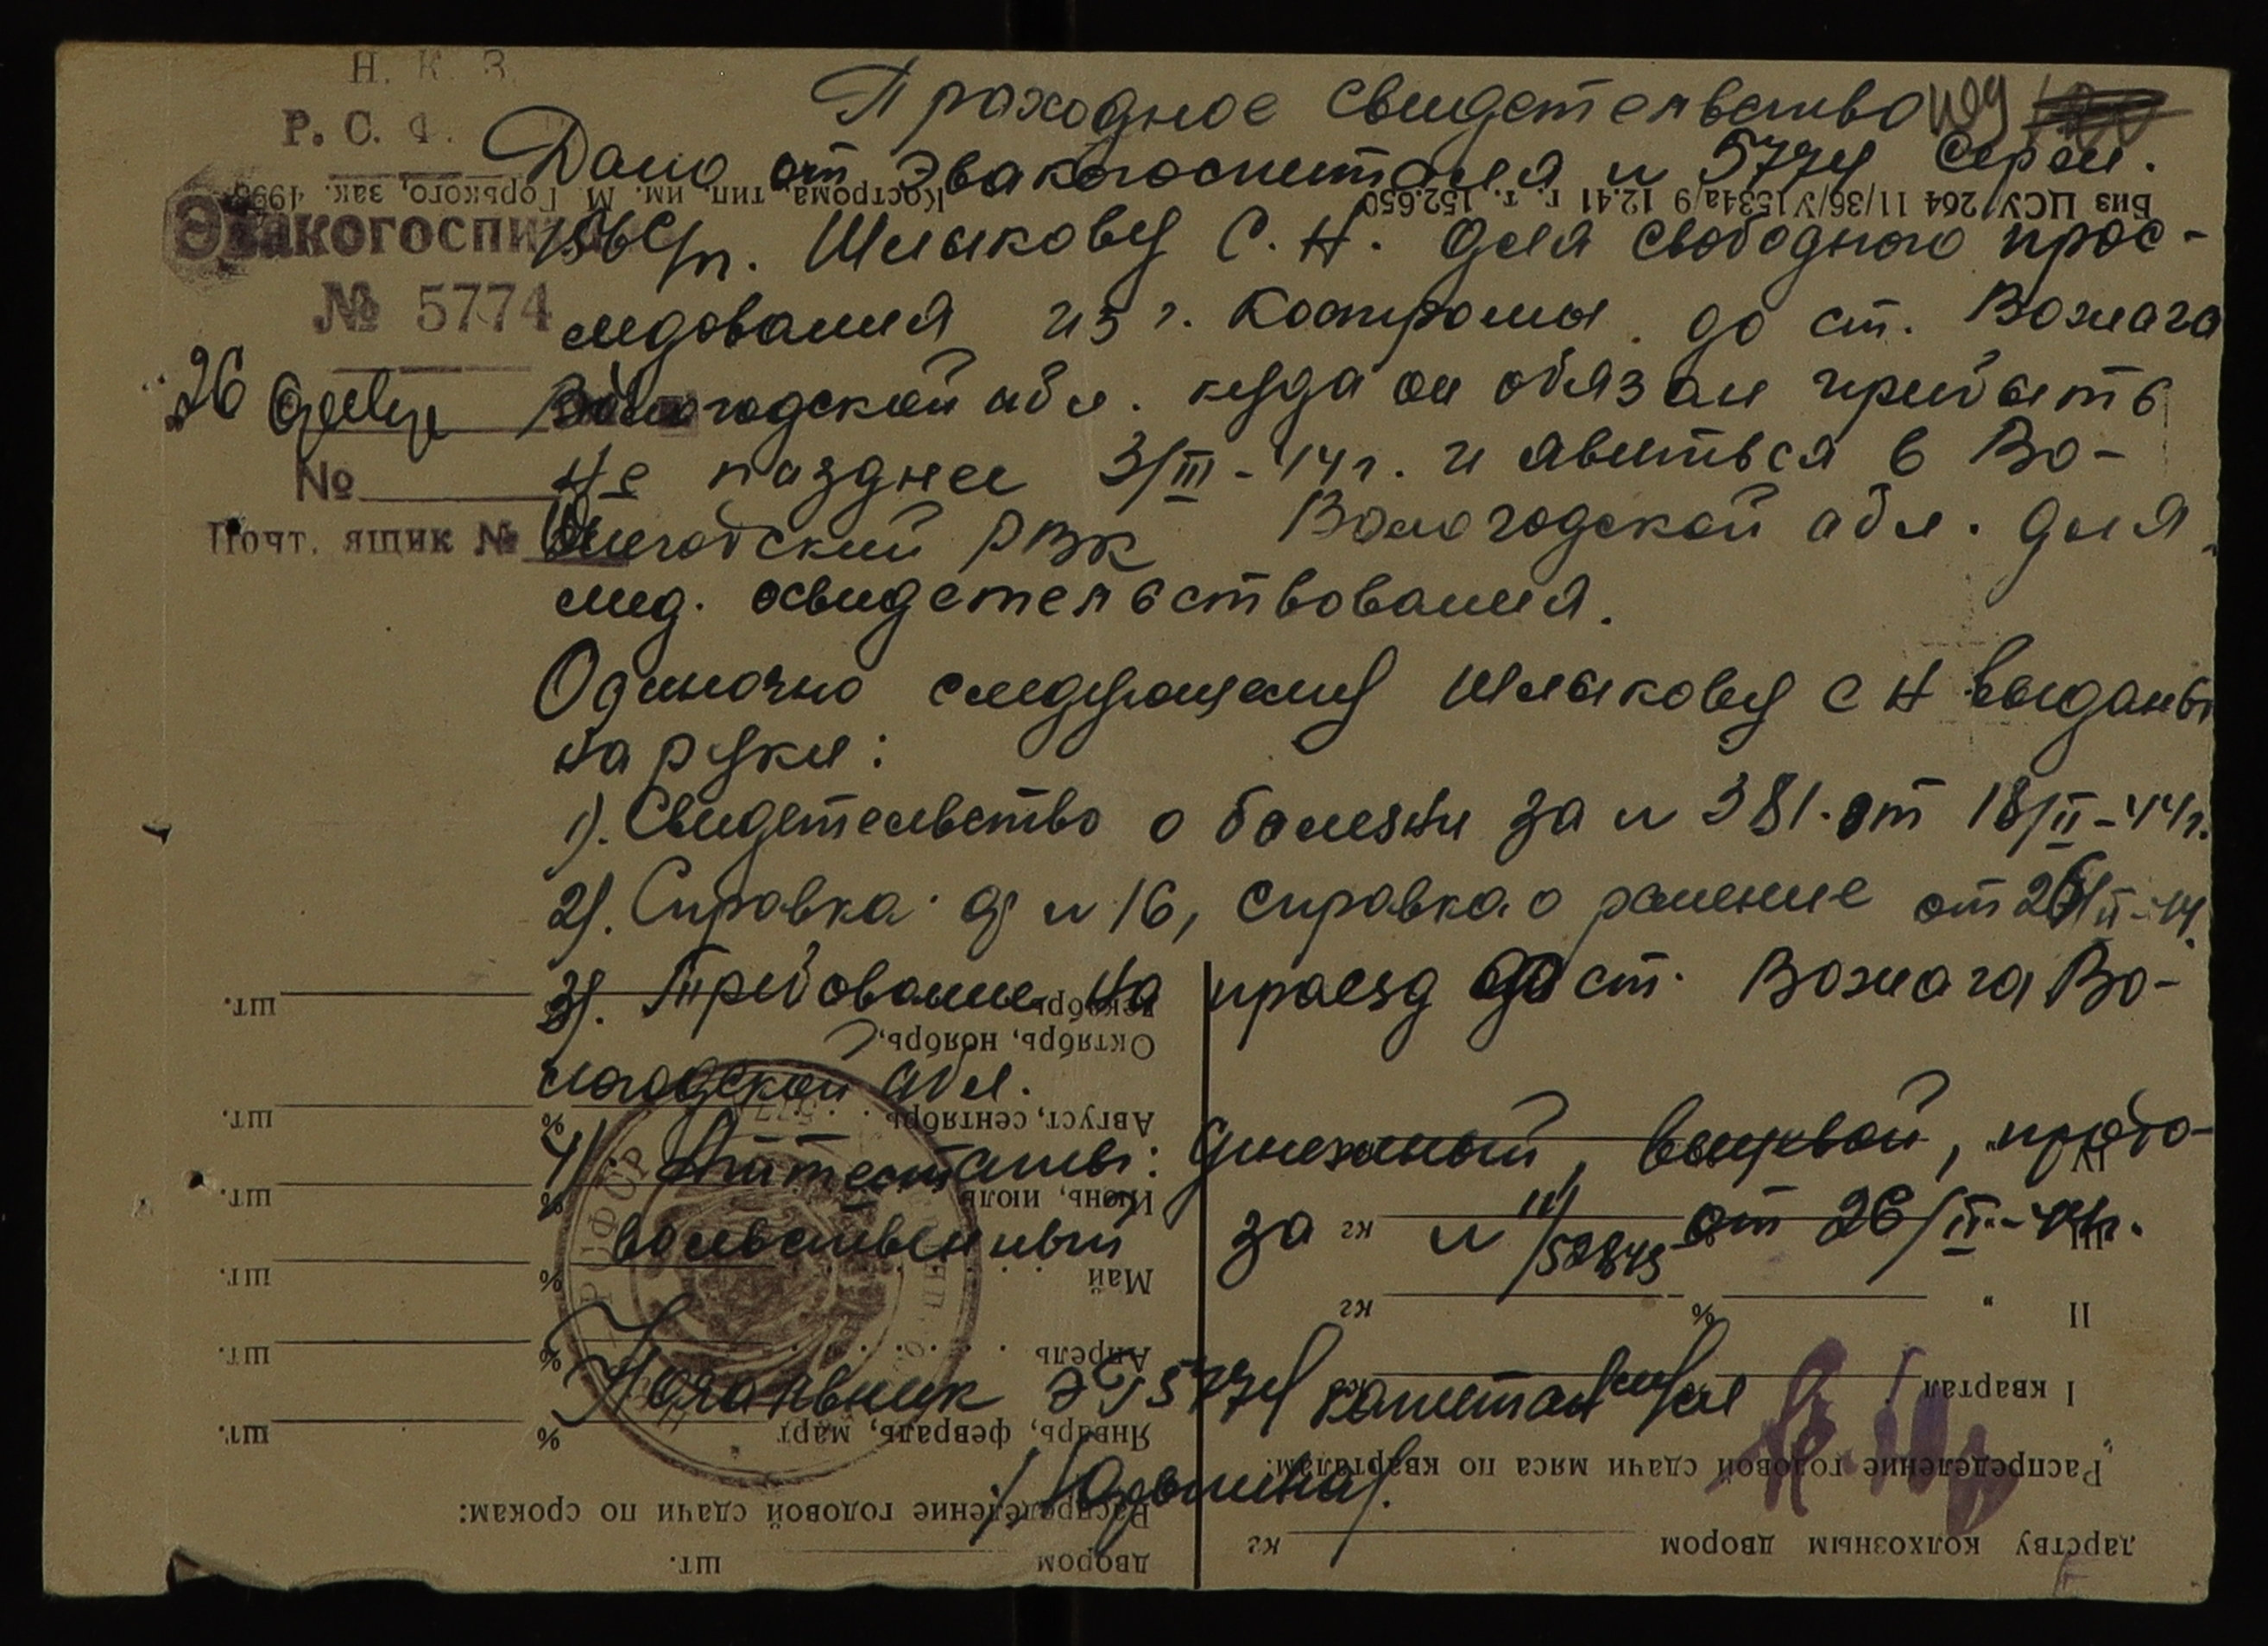 Н. К. З.
Р. С. Ф.
Эвакогоспи
№ 5774
26 февр
№
Почт. ящик №
Проходное свидетельство 109
Дано от Эвакогоспиталя № 5774
Шлыкову С. Н. для свободного прос-
ледования из г. Костромы до ст. Вожега
Вологодской обл. куда он обязан прибыть
не позднее 3/III-44г. и явиться в Во-
жегодский РВК Вологодской обл. для
мед. освидетельствования.
Одиночно следующему Шлыкову С Н выданы
на руки:
1). Свидетельство о болезни за № 381. от 18/II-44г.
2). Справка ф № 16, справка о ранение от 26/II-44.
3). Требование на проезд до ст. Вожега Во-
логодской обл.
4). Аттестаты: денежный, вещевой, продо-
вольственный за № 111/528849 от 26/II-44г.
Начальник ЭГ 5774 капитан м/сл
/Юдинина/.
Биз ЦСУ 264 11/36/У 1534а/9 12.41 г. т. 152.650
Кострома, тип. им. М. Горького, зак. 4995
дарству колхозным двором кг
Распределение годовой сдачи мяса по кварталам:
I квартал
II " % кг
III кг
IV "
двором шт.
Распределение годовой сдачи по срокам:
Январь, февраль, март % шт.
Апрель % шт.
Май % шт.
Июнь, июль % шт.
Август, сентябрь % шт.
Октябрь, ноябрь,
декабрь шт.
РСФСР